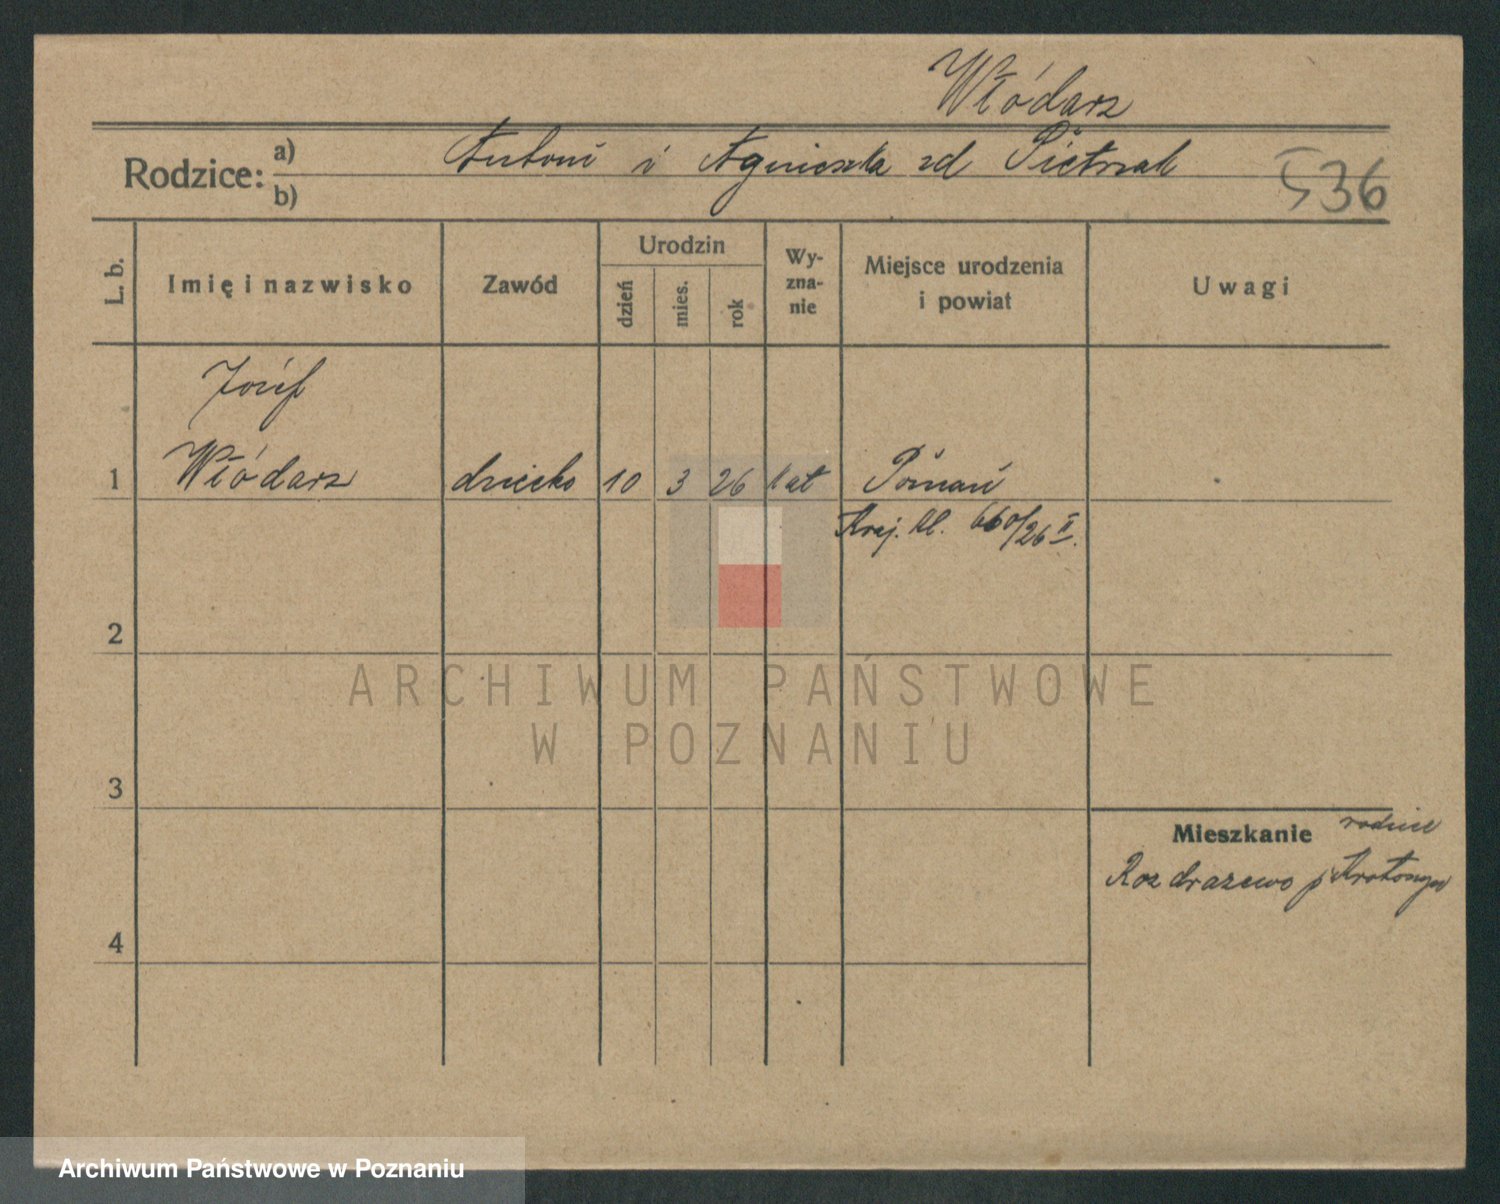 Włódarz
Rodzice: a) Antoni i Agnieszka zd Pietrzak
b)
536
L. b.
Imię i nazwisko
Zawód
Urodzin
dzień
mies.
rok
Wy-
zna-
nie
Miejsce urodzenia
i powiat
Uwagi
Józef
1 Włódarz dziecko 10 3 26 kat Poznań
Kraj. Kl. 660/26 II.
2
ARCHIWUM PAŃSTWOWE
W POZNANIU
3
Mieszkanie rodzice
Rozdrazewo p Krotoszyn
4
Archiwum Państwowe w Poznaniu